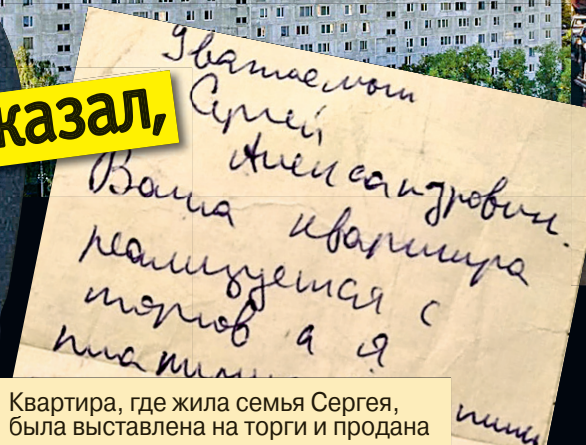 казал,
Уважаемый
Сергей
Александрович.
Ваша квартира
реализуется с
торгов а я
Квартира, где жила семья Сергея,
была выставлена на торги и продана